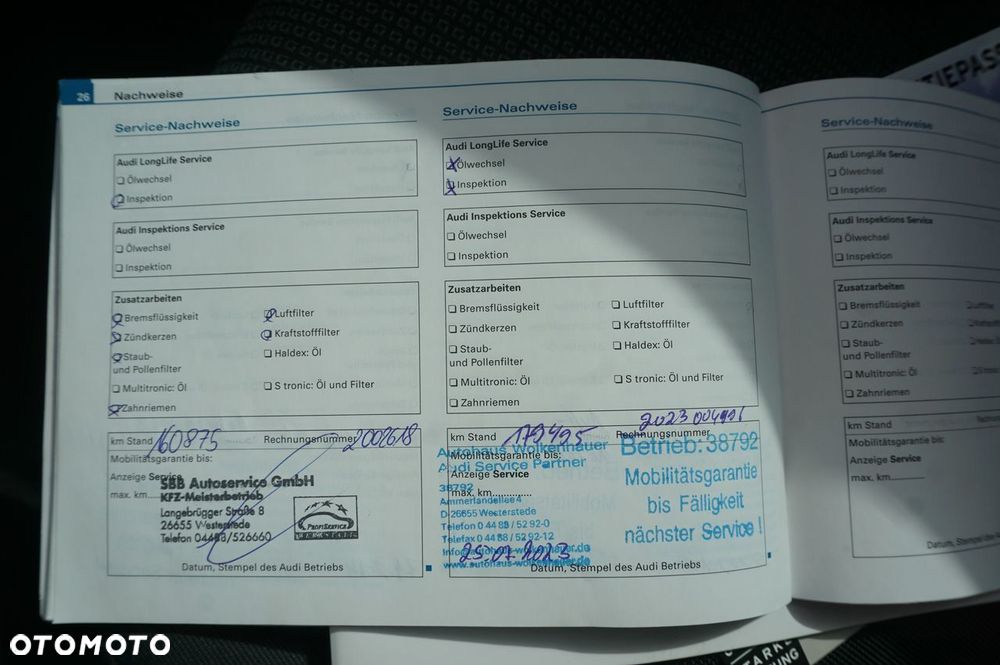 26 Nachweise
Service-Nachweise
Audi LongLife Service
Ölwechsel
Inspektion
Audi Inspektions Service
Ölwechsel
Inspektion
Zusatzarbeiten
Bremsflüssigkeit
Luftfilter
Zündkerzen
Kraftstofffilter
Staub-
und Pollenfilter
Haldex: Öl
Multitronic: Öl
S tronic: Öl und Filter
Zahnriemen
km Stand 160875 Rechnungsnummer 2002618
Mobilitätsgarantie bis:
Anzeige Service
max. km
SBB Autoservice GmbH
KFZ-Meisterbetrieb
Langebrügger Straße 8
26655 Westerstede
Telefon 04488/526660
PROFISERVICE
WERKSTATT
Datum, Stempel des Audi Betriebs
Service-Nachweise
Audi LongLife Service
Ölwechsel
Inspektion
Audi Inspektions Service
Ölwechsel
Inspektion
Zusatzarbeiten
Bremsflüssigkeit
Luftfilter
Zündkerzen
Kraftstofffilter
Staub-
und Pollenfilter
Haldex: Öl
Multitronic: Öl
S tronic: Öl und Filter
Zahnriemen
km Stand 179495 Rechnungsnummer
Mobilitätsgarantie bis:
Anzeige Service
max. km
Autohaus Wolkenhauer
Audi Service Partner
38792
Ammerlandallee 4
D-26655 Westerstede
Telefon 0 44 88 / 52 92-0
Telefax 0 44 88 / 52 92-12
info@autohaus-wolkenhauer.de
www.autohaus-wolkenhauer.de
25.07.2023
Betrieb: 38792
Mobilitätsgarantie
bis Fälligkeit
nächster Service !
Datum, Stempel des Audi Betriebs
Service-Nachweise
Audi LongLife Service
Ölwechsel
Inspektion
Audi Inspektions Service
Ölwechsel
Inspektion
Zusatzarbeiten
Bremsflüssigkeit
Zündkerzen
Staub-
und Pollenfilter
Multitronic: Öl
Zahnriemen
km Stand
Mobilitätsgarantie bis:
Anzeige Service
max. km
OTOMOTO